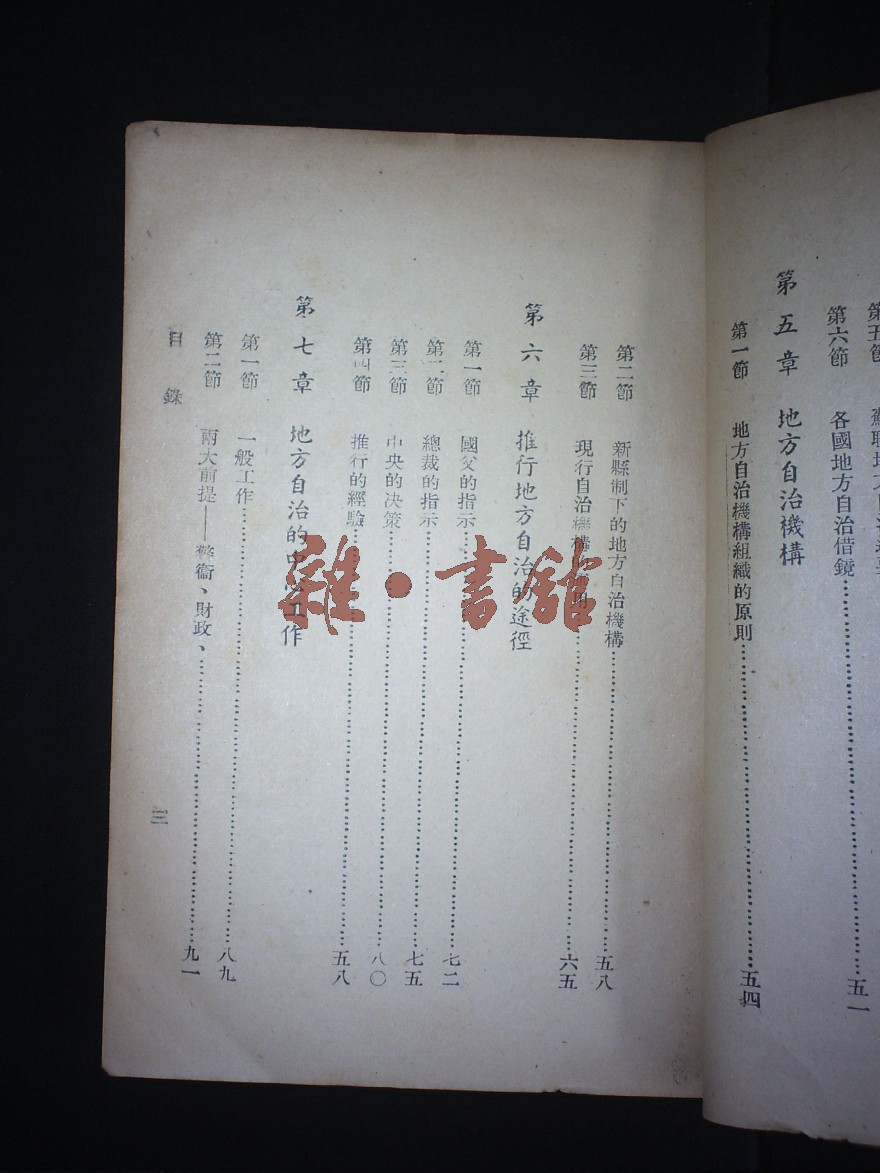 第六節 各國地方自治借鏡……五一
第五章 地方自治機構
第一節 地方自治機構組織的原則……五四
第二節 新縣制下的地方自治機構……五八
第三節 現行自治機構的運用……六五
第六章 推行地方自治的途徑
第一節 國父的指示……七二
第二節 總裁的指示……七五
第三節 中央的决策……八〇
第四節 推行的經驗……五八
第七章 地方自治的中心工作
第一節 一般工作……八九
第二節 兩大前提——警衞、財政、……九一
目錄
三
雜·書館